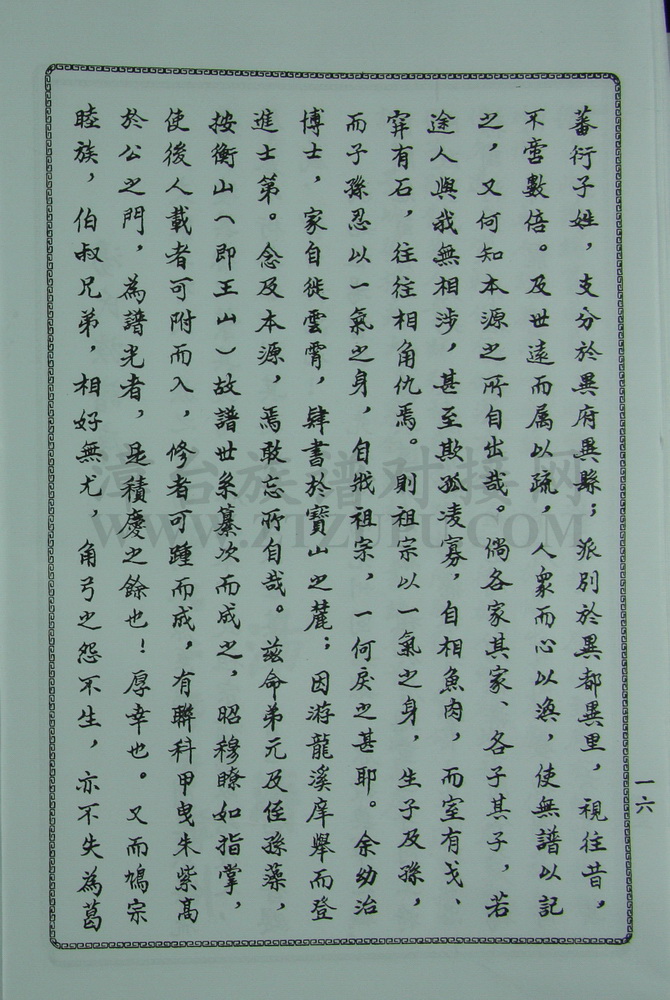 蕃衍子姓，支分於異府異縣；派別於異都異里，視往昔，
不啻數倍。及世遠而属以疏，人衆而心以渙，使無譜以記
之，又何知本源之所自出哉。倘各家其家、各子其子，若
途人與我無相涉，甚至欺孤凌寡，自相魚肉，而室有戈、
穽有石，往往相角仇焉。則祖宗以一氣之身，生子及孫，
而子孫忍以一氣之身，自戕祖宗，一何戾之甚耶。余幼治
博士，家自徙雲霄，肄書於寶山之麓；因游龍溪庠舉而登
進士第。念及本源，焉敢忘所自哉。茲命弟元及侄孫藻，
按衡山（即王山）故譜世系纂次而成之，昭穆瞭如指掌，
使後人載者可附而入，修者可踵而成，有聯科甲曳朱紫高
於公之門，為譜光者，是積慶之餘也！厚幸也。又而鳩宗
睦族，伯叔兄弟，相好無尤，角弓之怨不生，亦不失為葛
一六
漳台族谱对接网
WWW.ZTZUPU.COM